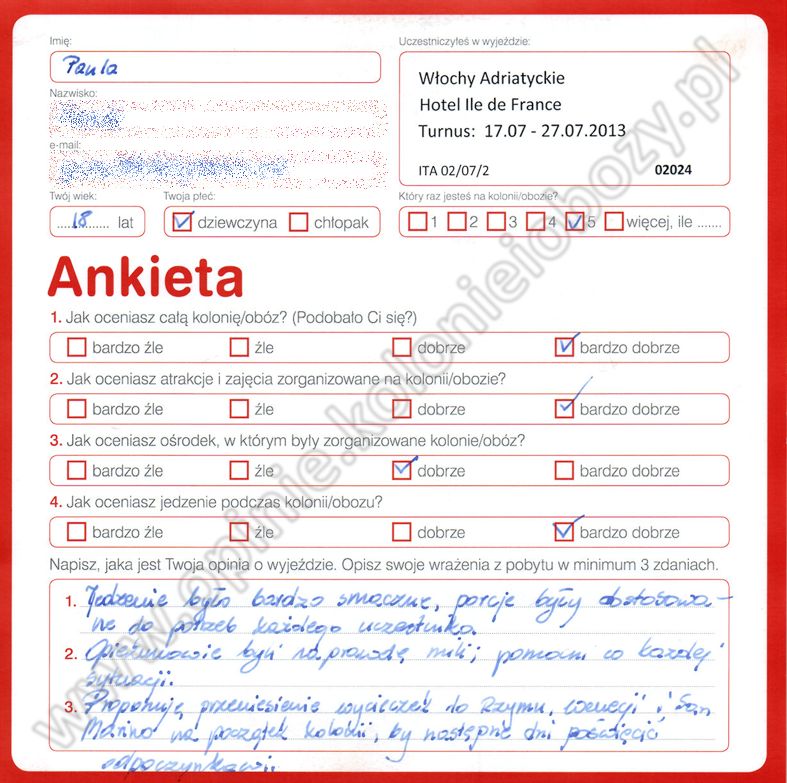 Imię:
Paula
Uczestniczyłeś w wyjeździe:
Włochy Adriatyckie
Hotel Ile de France
Turnus: 17.07 - 27.07.2013
ITA 02/07/2 02024
Nazwisko:
e-mail:
Twój wiek:
....18....... lat
Twoja płeć:
dziewczyna chłopak
Który raz jesteś na kolonii/obozie?
1 2 3 4 5 więcej, ile .......
Ankieta
1. Jak oceniasz całą kolonię/obóz? (Podobało Ci się?)
bardzo źle źle dobrze bardzo dobrze
2. Jak oceniasz atrakcje i zajęcia zorganizowane na kolonii/obozie?
bardzo źle źle dobrze bardzo dobrze
3. Jak oceniasz ośrodek, w którym były zorganizowane kolonie/obóz?
bardzo źle źle dobrze bardzo dobrze
4. Jak oceniasz jedzenie podczas kolonii/obozu?
bardzo źle źle dobrze bardzo dobrze
Napisz, jaka jest Twoja opinia o wyjeździe. Opisz swoje wrażenia z pobytu w minimum 3 zdaniach.
1. Jedzenie było bardzo smaczne, porcje były dostosowa-
ne do potrzeb każdego uczestnika.
2. Opiekunowie byli naprawdę mili i pomocni w każdej
sytuacji.
3. Proponuję przeniesienie wycieczek do Rzymu, Wenecji i San
Marino na początek kolonii, by następne dni poświęcić
odpoczynkowi.
www.opinie.kolonieiobozy.pl